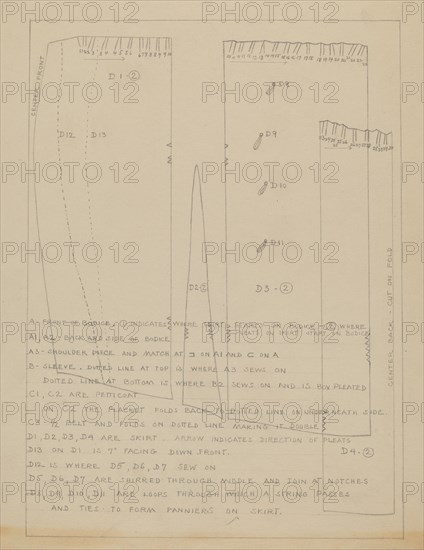 CENTER FRONT
D1-②
D12
D13
D8
D9
D10
D11
D2-②
D3-②
CENTER BACK - CUT ON FOLD
D4-②
A- FRONT OF BODICE. INDICATES WHERE SKIRT WHERE
A1, A2- BACK AND SIDE OF BODICE
A3- SHOULDER PIECE AND MATCH AT IN A1 AND C ON A
B- SLEEVE. DOTTED LINE AT TOP IS WHERE A3 SEWS ON
DOTTED LINE AT BOTTOM IS WHERE B2 SEWS ON AND IS BOX PLEATED
C1, C2 ARE PETTICOAT
IN C2 THE PLACKET FOLDS BACK TO DOTTED LINE IN UNDERNEATH SIDE
C3 IS BELT AND FOLDS ON DOTTED LINE MAKING IT DOUBLE
D1, D2, D3, D4 ARE SKIRT - ARROW INDICATES DIRECTION OF PLEATS
D13 ON D1 IS 1" FACING DOWN FRONT.
D12 IS WHERE D5, D6, D7 SEW ON
D5, D6, D7 ARE SHIRRED THROUGH MIDDLE AND JOIN AT NOTCHES
D8, D9, D10, D11 ARE LOOPS THROUGH WHICH A STRING PASSES
AND TIES TO FORM PANNIERS ON SKIRT.
PHOTO 12